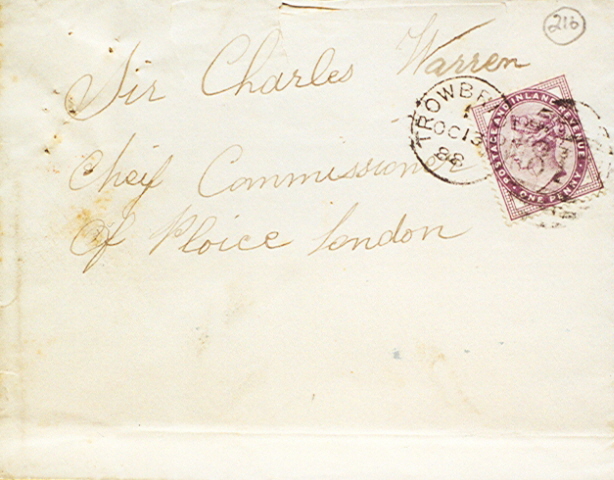 216
Sir Charles Warren
TROWBR
OC 13
88
POSTAGE AND INLAND REVENUE
ONE PENNY
Cheif Commissioner
Of Ploice London